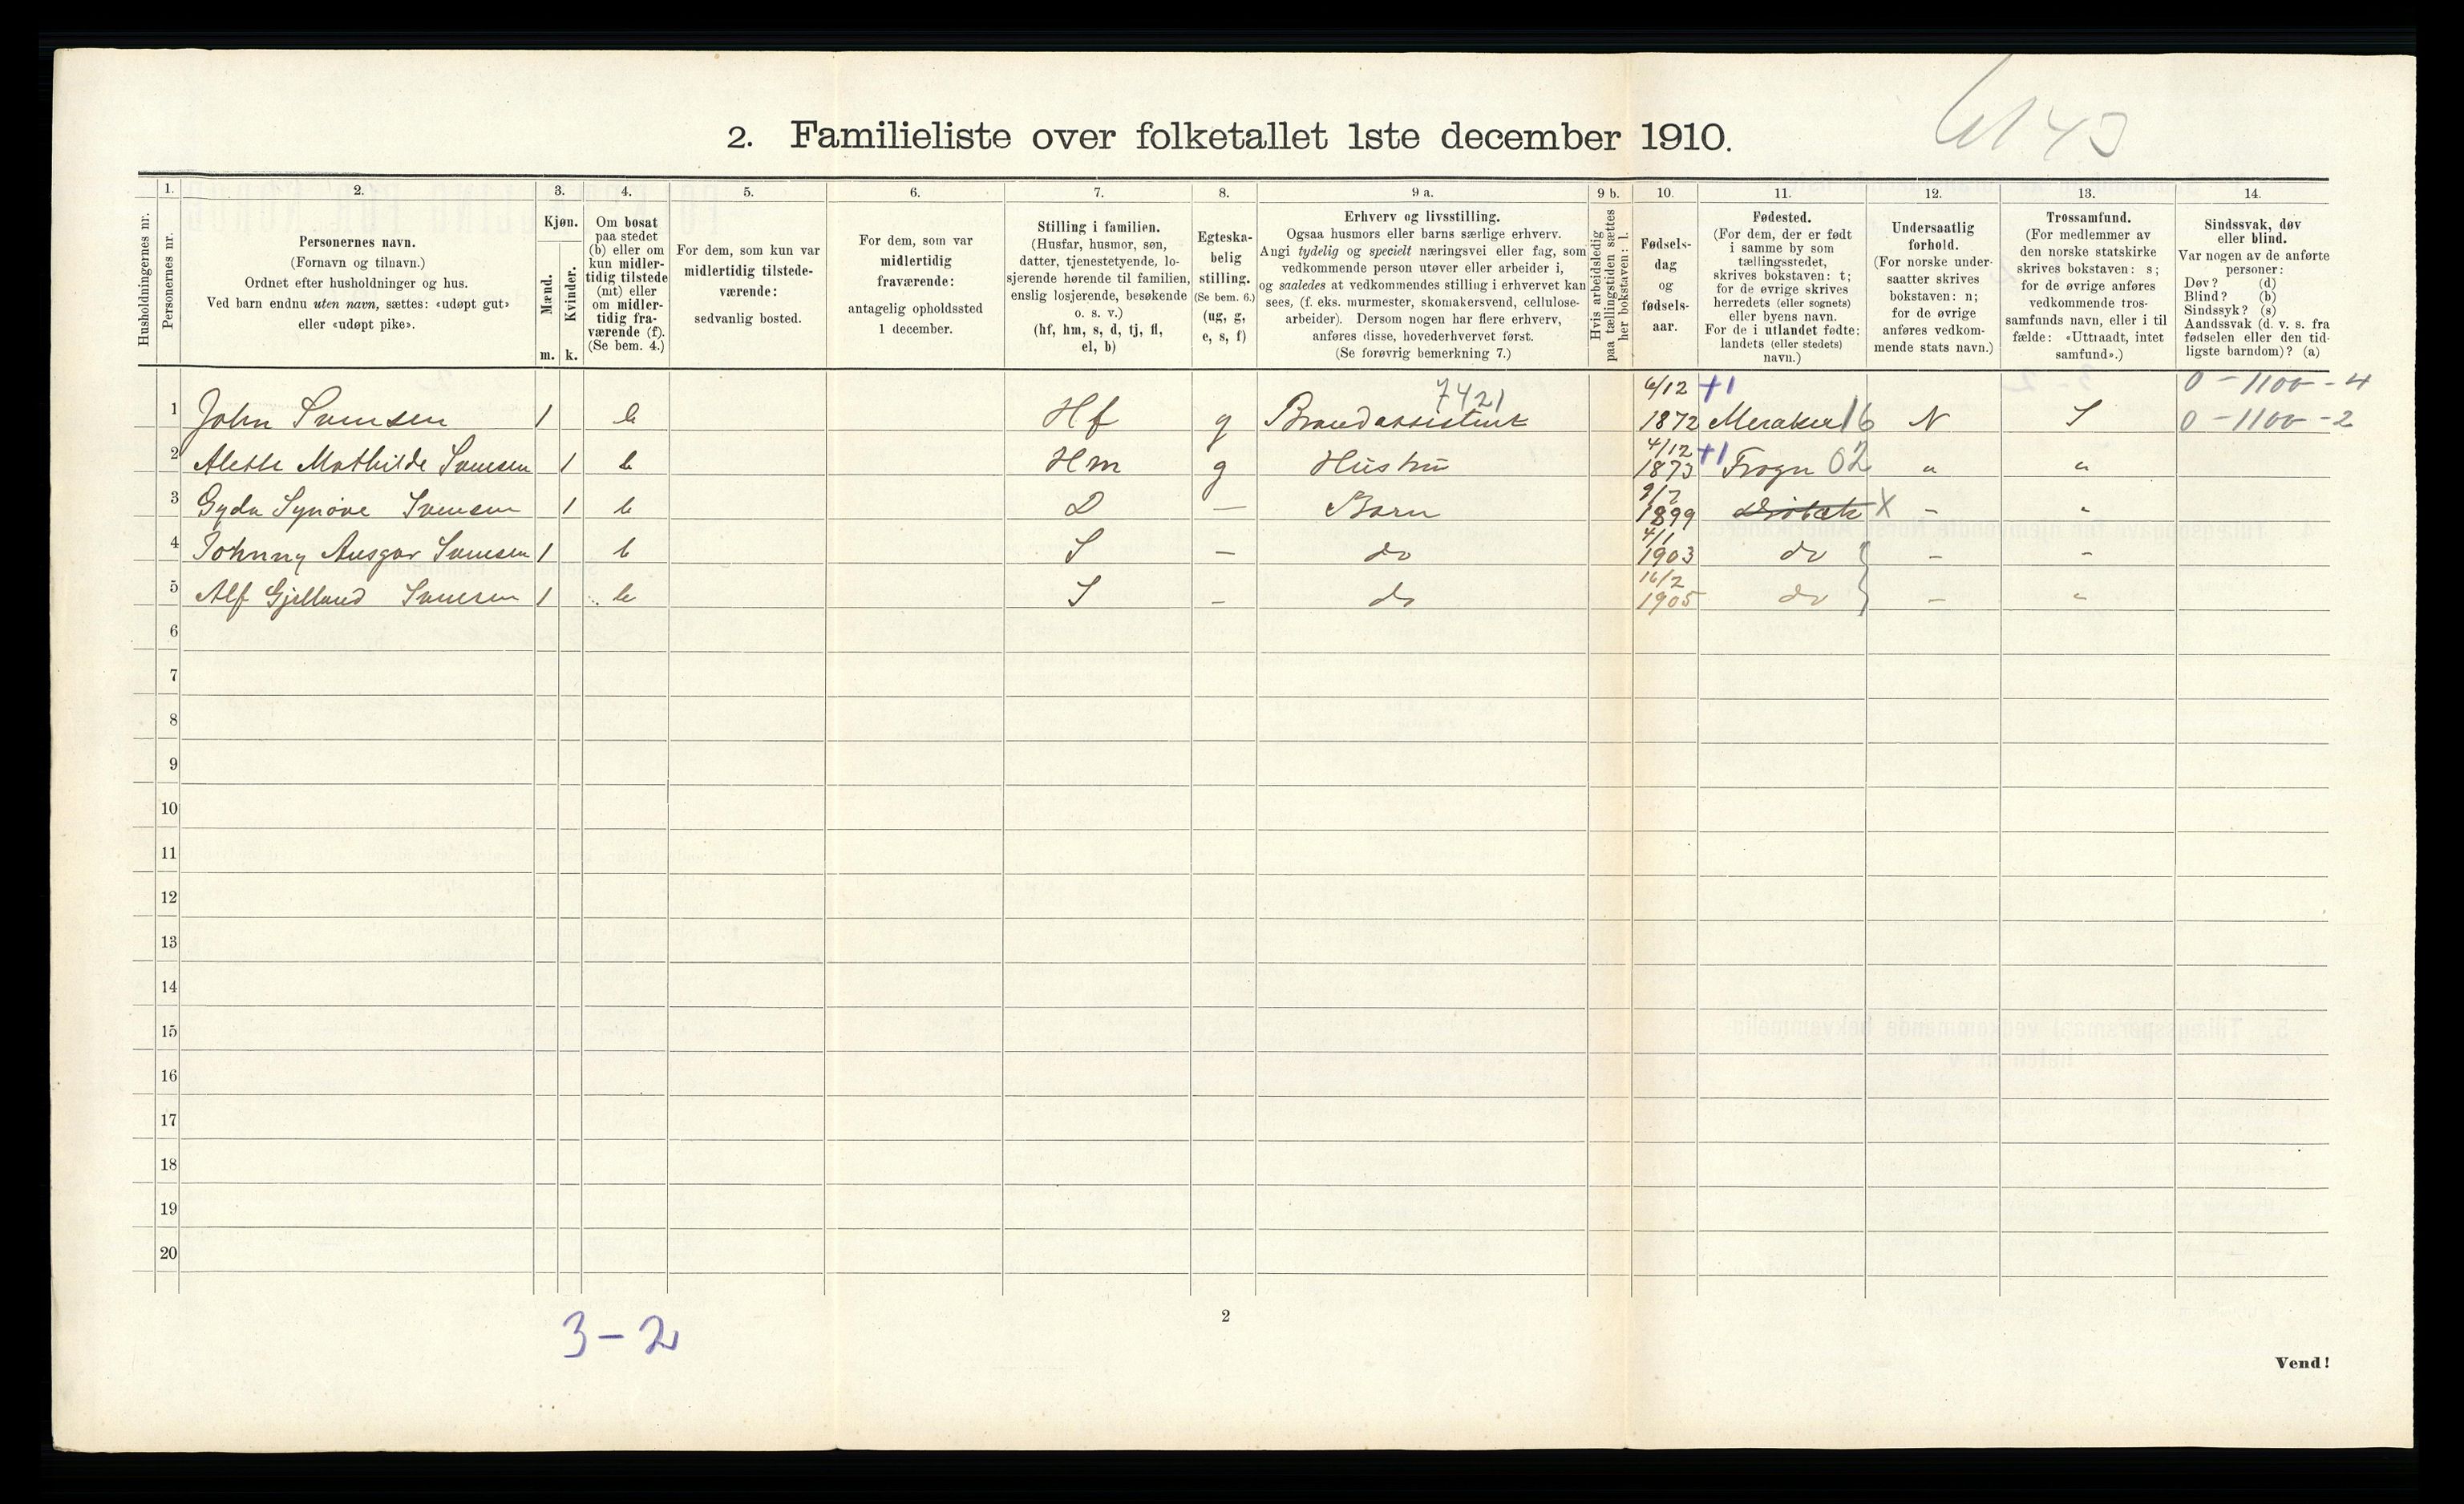 6143
2. Familieliste over folketallet 1ste december 1910.
1. 2. 3. 4. 5. 6. 7. 8. 9 a. 9 b. 10. 11. 12. 13. 14.
Husholdningernes nr.
Personernes nr.
Personernes navn.
(Fornavn og tilnavn.)
Ordnet efter husholdninger og hus.
Ved barn endnu uten navn, sættes: «udøpt gut»
eller «udøpt pike».
Kjøn.
Mænd.
Kvinder.
m. k.
Om bosat
paa stedet
(b) eller om
kun midler-
tidig tilstede
(mt) eller
om midler-
tidig fra-
værende (f).
(Se bem. 4.)
For dem, som kun var
midlertidig tilstede-
værende:
sedvanlig bosted.
For dem, som var
midlertidig
fraværende:
antagelig opholdssted
1 december.
Stilling i familien.
(Husfar, husmor, søn,
datter, tjenestetyende, lo-
sjerende hørende til familien,
enslig losjerende, besøkende
o. s. v.)
(hf, hm, s, d, tj, fl,
el, b)
Egteska-
belig
stilling.
(Se bem. 6.)
(ug, g,
e, s, f)
Erhverv og livsstilling.
Ogsaa husmors eller barns særlige erhverv.
Angi tydelig og specielt næringsvei eller fag, som
vedkommende person utøver eller arbeider i,
og saaledes at vedkommendes stilling i erhvervet kan
sees, (f. eks. murmester, skomakersvend, cellulose-
arbeider). Dersom nogen har flere erhverv,
anføres disse, hovederhvervet først.
(Se forøvrig bemerkning 7.)
Hvis arbeidsledig
paa tællingstiden sættes
her bokstaven: l.
Fødsels-
dag
og
fødsels-
aar.
Fødested.
(For dem, der er født
i samme by som
tællingsstedet,
skrives bokstaven: t;
for de øvrige skrives
herredets (eller sognets)
eller byens navn.
For de i utlandet fødte:
landets (eller stedets)
navn.)
Undersaatlig
forhold.
(For norske under-
saatter skrives
bokstaven: n;
for de øvrige
anføres vedkom-
mende stats navn.)
Trossamfund.
(For medlemmer av
den norske statskirke
skrives bokstaven: s;
for de øvrige anføres
vedkommende tros-
samfunds navn, eller i til
fælde: «Uttraadt, intet
samfund».)
Sindssvak, døv
eller blind.
Var nogen av de anførte
personer:
Døv? (d)
Blind? (b)
Sindssyk? (s)
Aandssvak (d. v. s. fra
fødselen eller den tid-
ligste barndom)? (a)
7421 6/12 +1 0 - 1100 - 4
1 John Svensen 1 b Hf g Brandassistent 1872 Meraker 16 N S 0 - 1100 - 2
4/12 +1
2 Alette Mathilde Svensen 1 b Hm g Hustru 1873 Frogn 02 " "
9/2
3 Gyda Synöve Svensen 1 b D — Barn 1899 Dröbak X - "
4/1
4 Johnny Ansgar Svensen 1 b S — do 1903 do - -
16/2
5 Alf Gjelland Svensen 1 b S - do 1905 do - "
6
7
8
9
10
11
12
13
14
15
16
17
18
19
20
3 - 2
2
Vend!